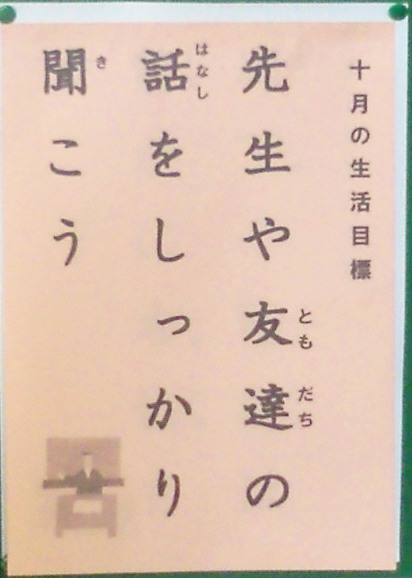 十月の生活目標
先生や友達の
ともだち
話をしっかり
はなし
聞こう
き